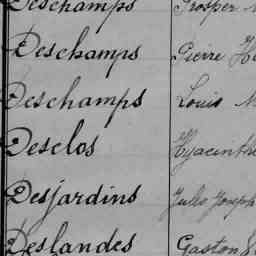 Deschamps Prosper
Deschamps Pierre
Deschamps Louis
Desclos Hyacinthe
Desjardins Jules Joseph
Deslandes Gaston